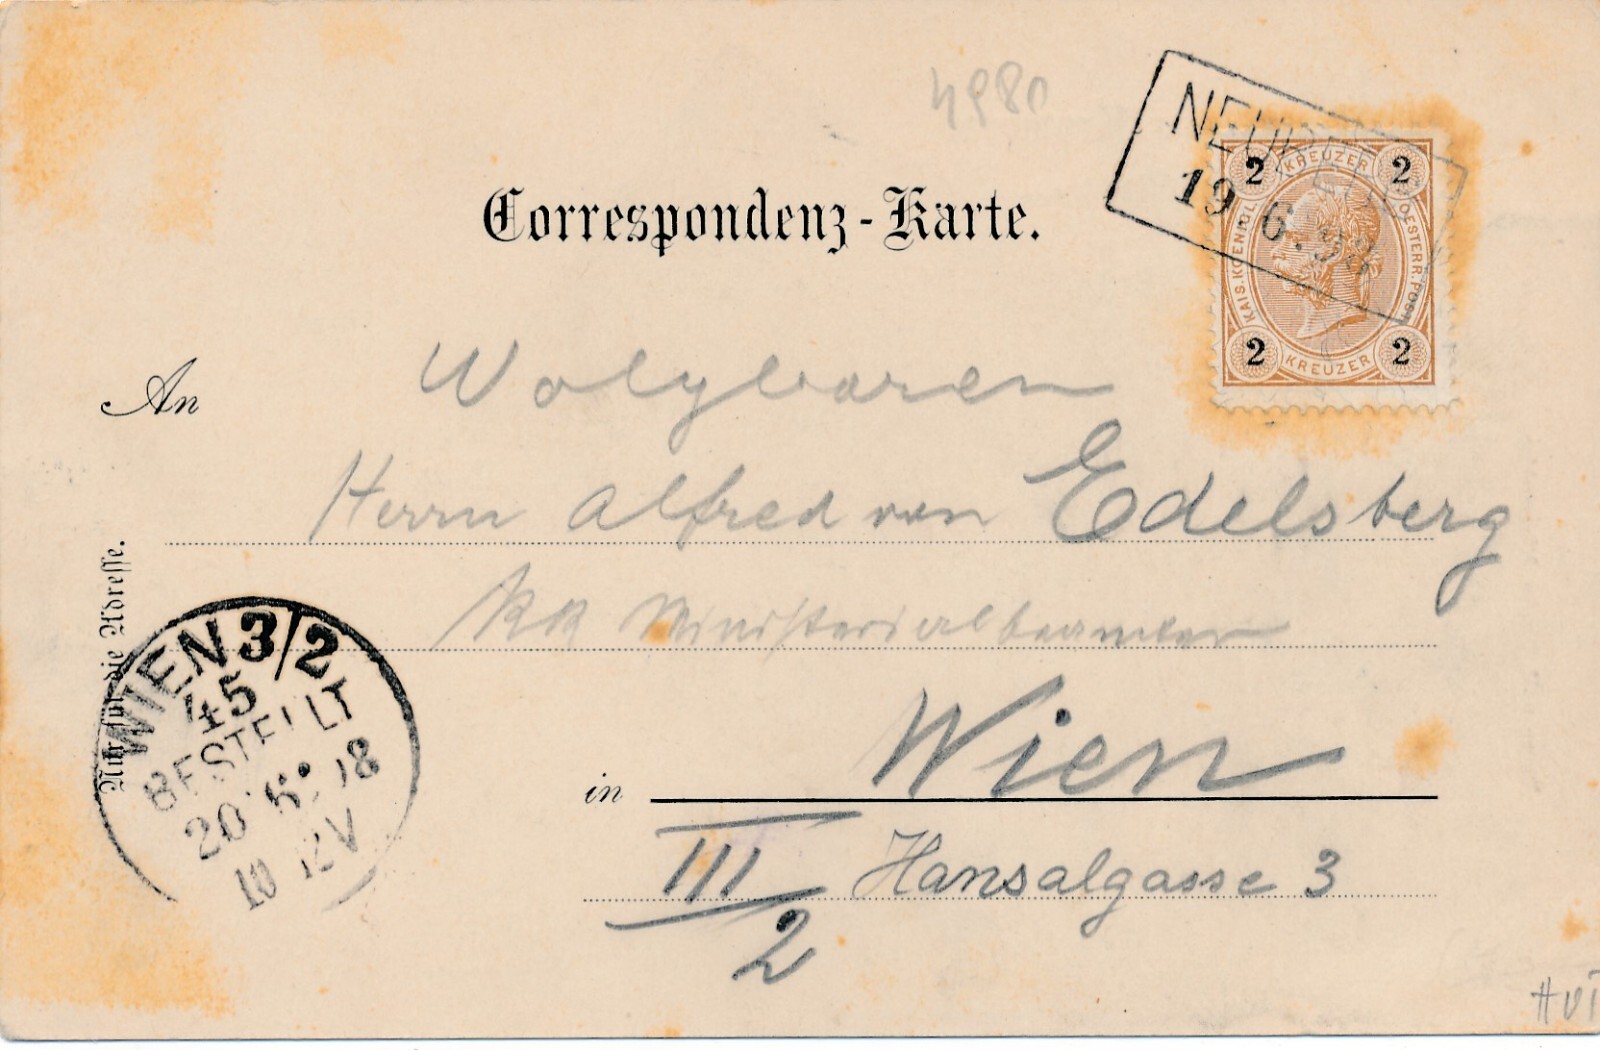 4980
Correspondenz-Karte.
19.6.98
2 KREUZER 2
KAIS. KOENIGL. OESTERR. POST
2 KREUZER 2
An
Herrn Alfred von Edelsberg
KK Ministerialbeamter
Nur für die Adresse.
WIEN 3/2
45
BESTELLT
20.6.98
in Wien
III Hansalgasse 3
2